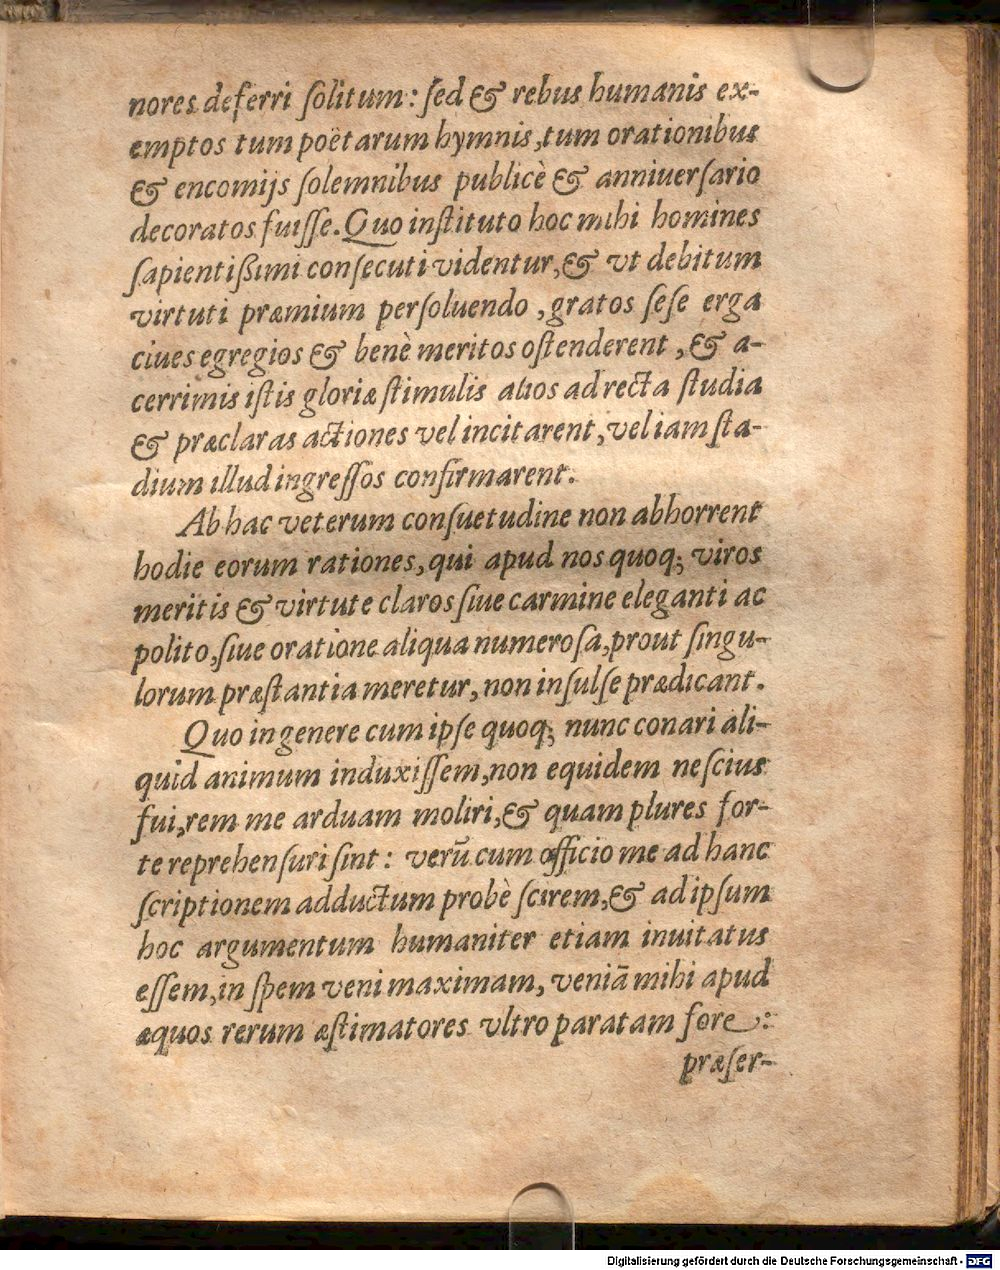 nores deferri ſolitum: ſed & rebus humanis ex-
emptos tum poëtarum hymnis, tum orationibus
& encomijs ſolemnibus publicè & anniuerſario
decoratos fuiſſe. Quo inſtituto hoc mihi homines
ſapientißimi conſecuti videntur, & vt debitum
virtuti præmium perſoluendo, gratos ſeſe erga
ciues egregios & benè meritos oſtenderent, & a-
cerrimis iſtis gloriæ ſtimulis alios ad recta ſtudia
& præclaras actiones vel incitarent, vel iam ſta-
dium illud ingreſſos confirmarent.
Ab hac veterum conſuetudine non abhorrent
hodie eorum rationes, qui apud nos quoq; viros
meritis & virtute claros ſiue carmine eleganti ac
polito, ſiue oratione aliqua numeroſa, prout ſingu-
lorum præſtantia meretur, non inſulſe prædicant.
Quo in genere cum ipſe quoq; nunc conari ali-
quid animum induxiſſem, non equidem neſcius
fui, rem me arduam moliri, & quam plures for-
te reprehenſuri ſint: verũ cum officio me ad hanc
ſcriptionem adductum probè ſcirem, & ad ipſum
hoc argumentum humaniter etiam inuitatus
eſſem, in ſpem veni maximam, veniã mihi apud
æquos rerum æſtimatores vltro paratam fore:
præſer-
Digitalisierung gefördert durch die Deutsche Forschungsgemeinschaft - DFG